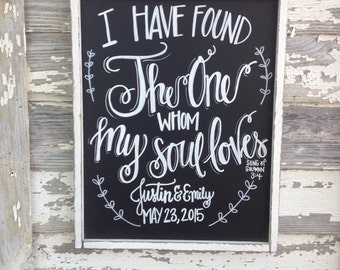 I HAVE FOUND
The One
WHOM
My soul loves
SONG of
SOLOMON
3:4
Justin & Emily
MAY 23, 2015